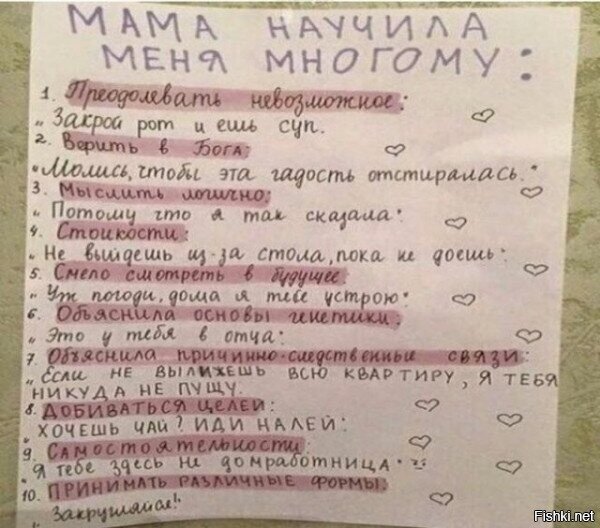 МАМА НАУЧИЛА
МЕНЯ МНОГОМУ:
1. Преодолевать невозможное:
„Закрой рот и ешь суп.
2. Верить в Бога:
"Молись, чтобы эта гадость отстиралась."
3. Мыслить логично:
„Потому что я так сказала"
4. Стойкости:
„Не выйдешь из-за стола, пока не доешь"
5. Смело смотреть в будущее:
„Уж погоди, дома я тебе устрою"
6. Объяснила основы генетики:
„Это у тебя в отца"
7. Объяснила причинно-следственные связи:
„Если не вылижешь всю квартиру, я тебя
никуда не пущу.
8. ДОБИВАТЬСЯ ЦЕЛЕЙ:
„ХОЧЕШЬ ЧАЙ? ИДИ НАЛЕЙ"
9. САМОСТОЯТЕЛЬНОСТИ:
"Я тебе здесь не домработница"
10. ПРИНИМАТЬ РАЗЛИЧНЫЕ ФОРМЫ:
„Закругляйся!"
Fishki.net